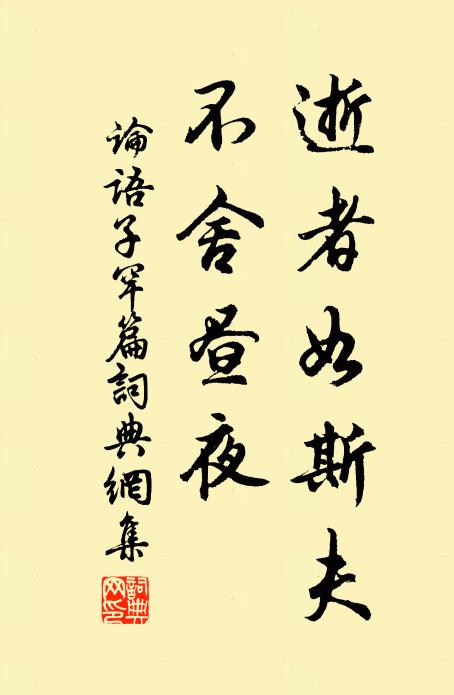 逝者如斯夫
不舍昼夜
論語子罕篇詞典網集
詞典
网印